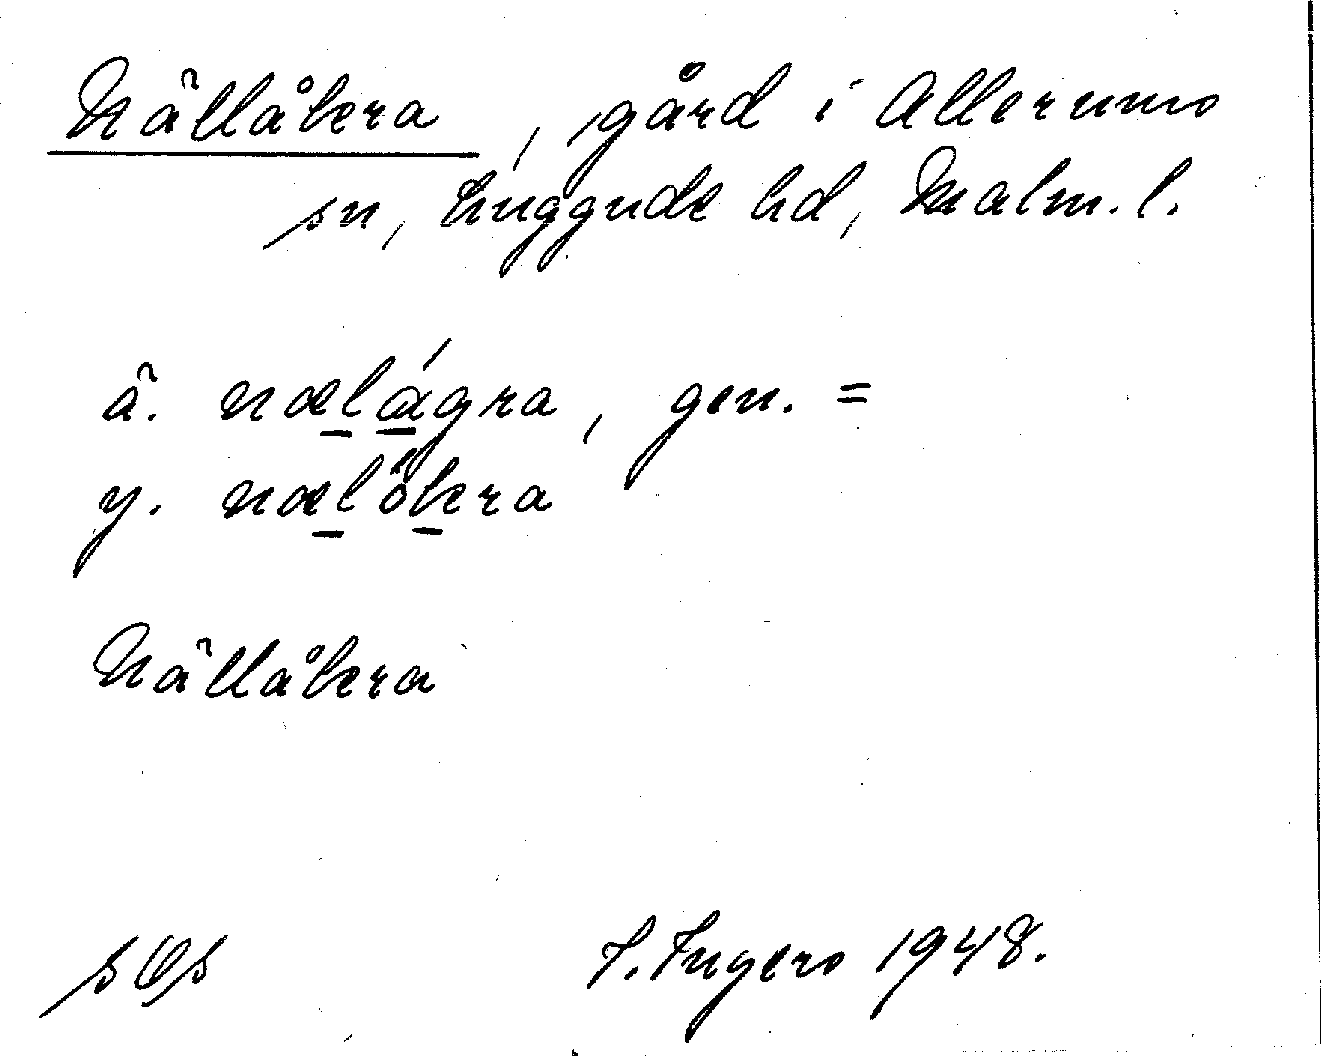 Nällåkra, gård i Allerums
sn, Luggude hd, Malm. l.
ä. nælágra, gen. =
y. nælökra
Nällåkra
I. Ingers 1948.